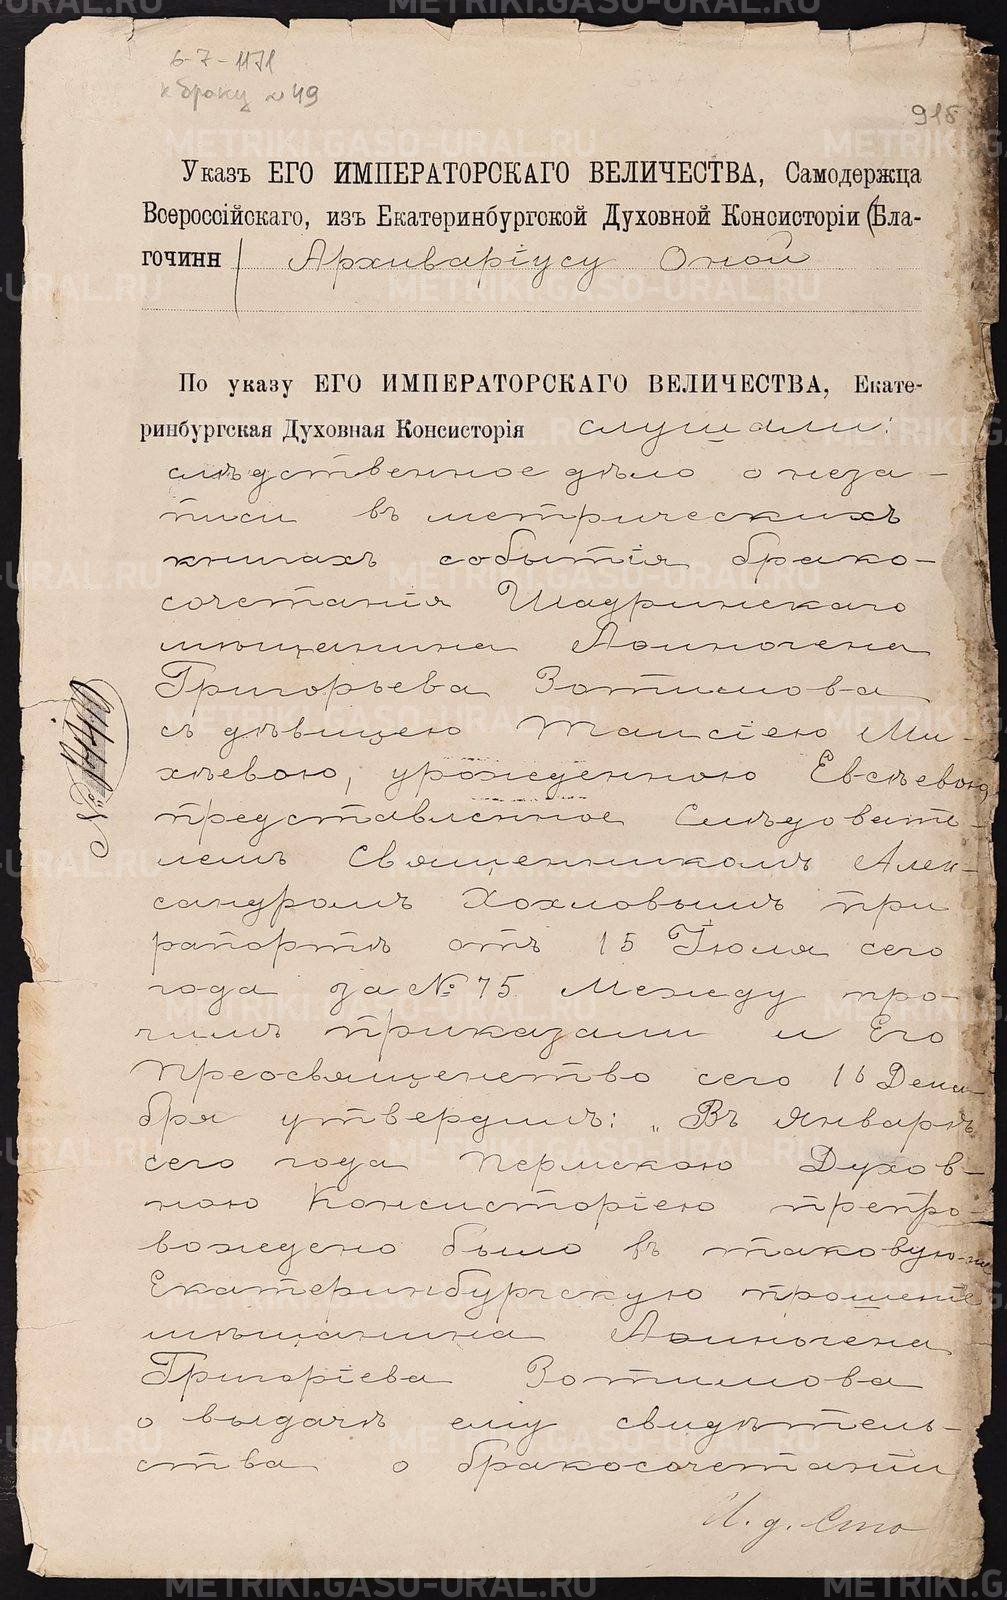 6-7-1171
к браку № 49
918
Указъ ЕГО ИМПЕРАТОРСКАГО ВЕЛИЧЕСТВА, Самодержца
Всероссійскаго, изъ Екатеринбургской Духовной Консисторіи (Бла-
гочинн Архиваріусу Оной
По указу ЕГО ИМПЕРАТОРСКАГО ВЕЛИЧЕСТВА, Екате-
ринбургская Духовная Консисторія слушали:
слѣдственное дѣло о неза-
писи въ метрическихъ
книгахъ событія брако-
сочетанія Шадринскаго
мѣщанина Аѳиногена
Григорьева Зотимова
съ дѣвицею Таисіею Ми-
хѣевою, урожденною Евсѣевою
представленное Слѣдовате-
лемъ Священникомъ Алек-
сандромъ Хохловымъ при
рапортѣ отъ 15 Іюля сего
года за № 75. Между про-
чимъ приказали и Его
Преосвященство сего 16 Дека-
бря утвердилъ: „Въ Январѣ
сего года Пермскою Духов-
ною Консисторіею препро-
вождено было въ таковую-же
Екатеринбургскую прошеніе
мѣщанина Аѳиногена
Григоріева Зотимова
о выдачѣ ему свидѣтель-
ства о бракосочетаніи
И. д. Сто
№
METRIKI.GASO-URAL.RU